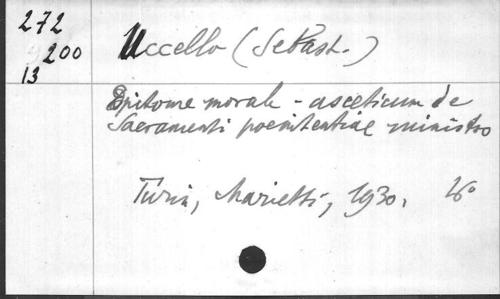 272
200
13
Uccello (Sebast.)
Epitome morale - asceticum de
Sacramenti poenitentiae ministro
Turin, Marietti, 1930. 16°